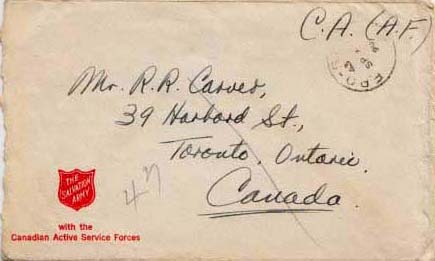 C.A. (A.F.)
F.P.O.
SP
43
Mr. R.R. Carver,
39 Harbord St.,
Toronto, Ontario.
Canada.
47
THE
SALVATION
ARMY
with the
Canadian Active Service Forces